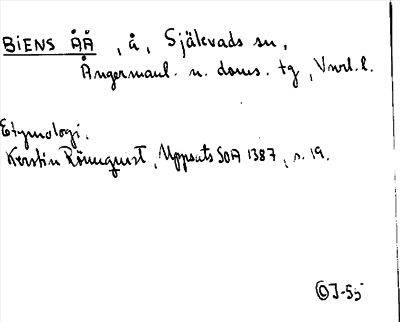 BIENS ÅÅ, å, Själevads sn,
Ångermanl. n. doms. tg, Vnrl. l.
Etymologi.
Kerstin Rönnquist, Uppsats SOA 1387, s. 19.